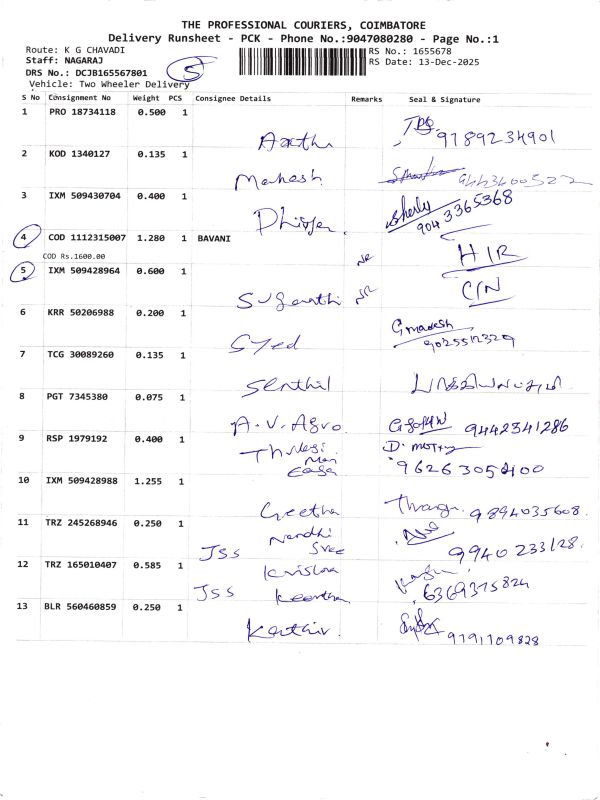 THE PROFESSIONAL COURIERS, COIMBATORE
Delivery Runsheet - PCK - Phone No.:9047080280 - Page No.:1
Route: K G CHAVADI
Staff: NAGARAJ
DRS No.: DCJB165567801
Vehicle: Two Wheeler Delivery
5
RS No.: 1655678
RS Date: 13-Dec-2025
S No Consignment No Weight PCS Consignee Details Remarks Seal & Signature
1 PRO 18734118 0.500 1
9789234901
2 KOD 1340127 0.135 1
Mahesh
3 IXM 509430704 0.400 1
Sherly
9043365368
4 COD 1112315007 1.280 1 BAVANI
COD Rs.1600.00
H/R
5 IXM 509428964 0.600 1
Suganthi C/N
6 KRR 50206988 0.200 1
Syed
7 TCG 30089260 0.135 1
Senthil
8 PGT 7345380 0.075 1
A.V. Agro 9442341286
9 RSP 1979192 0.400 1
10 IXM 509428988 1.255 1
Geetha 9894035608
11 TRZ 245268946 0.250 1
JSS Nandhi Sree 9940233128
12 TRZ 165010407 0.585 1
JSS 6369375824
13 BLR 560460859 0.250 1
9791109828